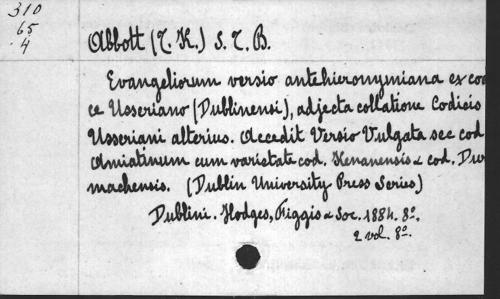 310
65
4
Abbott (T. K.) S. T. B.
Evangeliorum versio antehieronymiana ex cod
ce Usseriano (Dublinensi), adjecta collatione Codicis
Usseriani alterius. Accedit Versio Vulgata sec cod
Amiatinum cum varietate cod. Kenanensis & cod. Dur
machensis. (Dublin University Press Series)
Dublini. Hodges, Figgis & Soc. 1884. 8º.
2 vol. 8º.